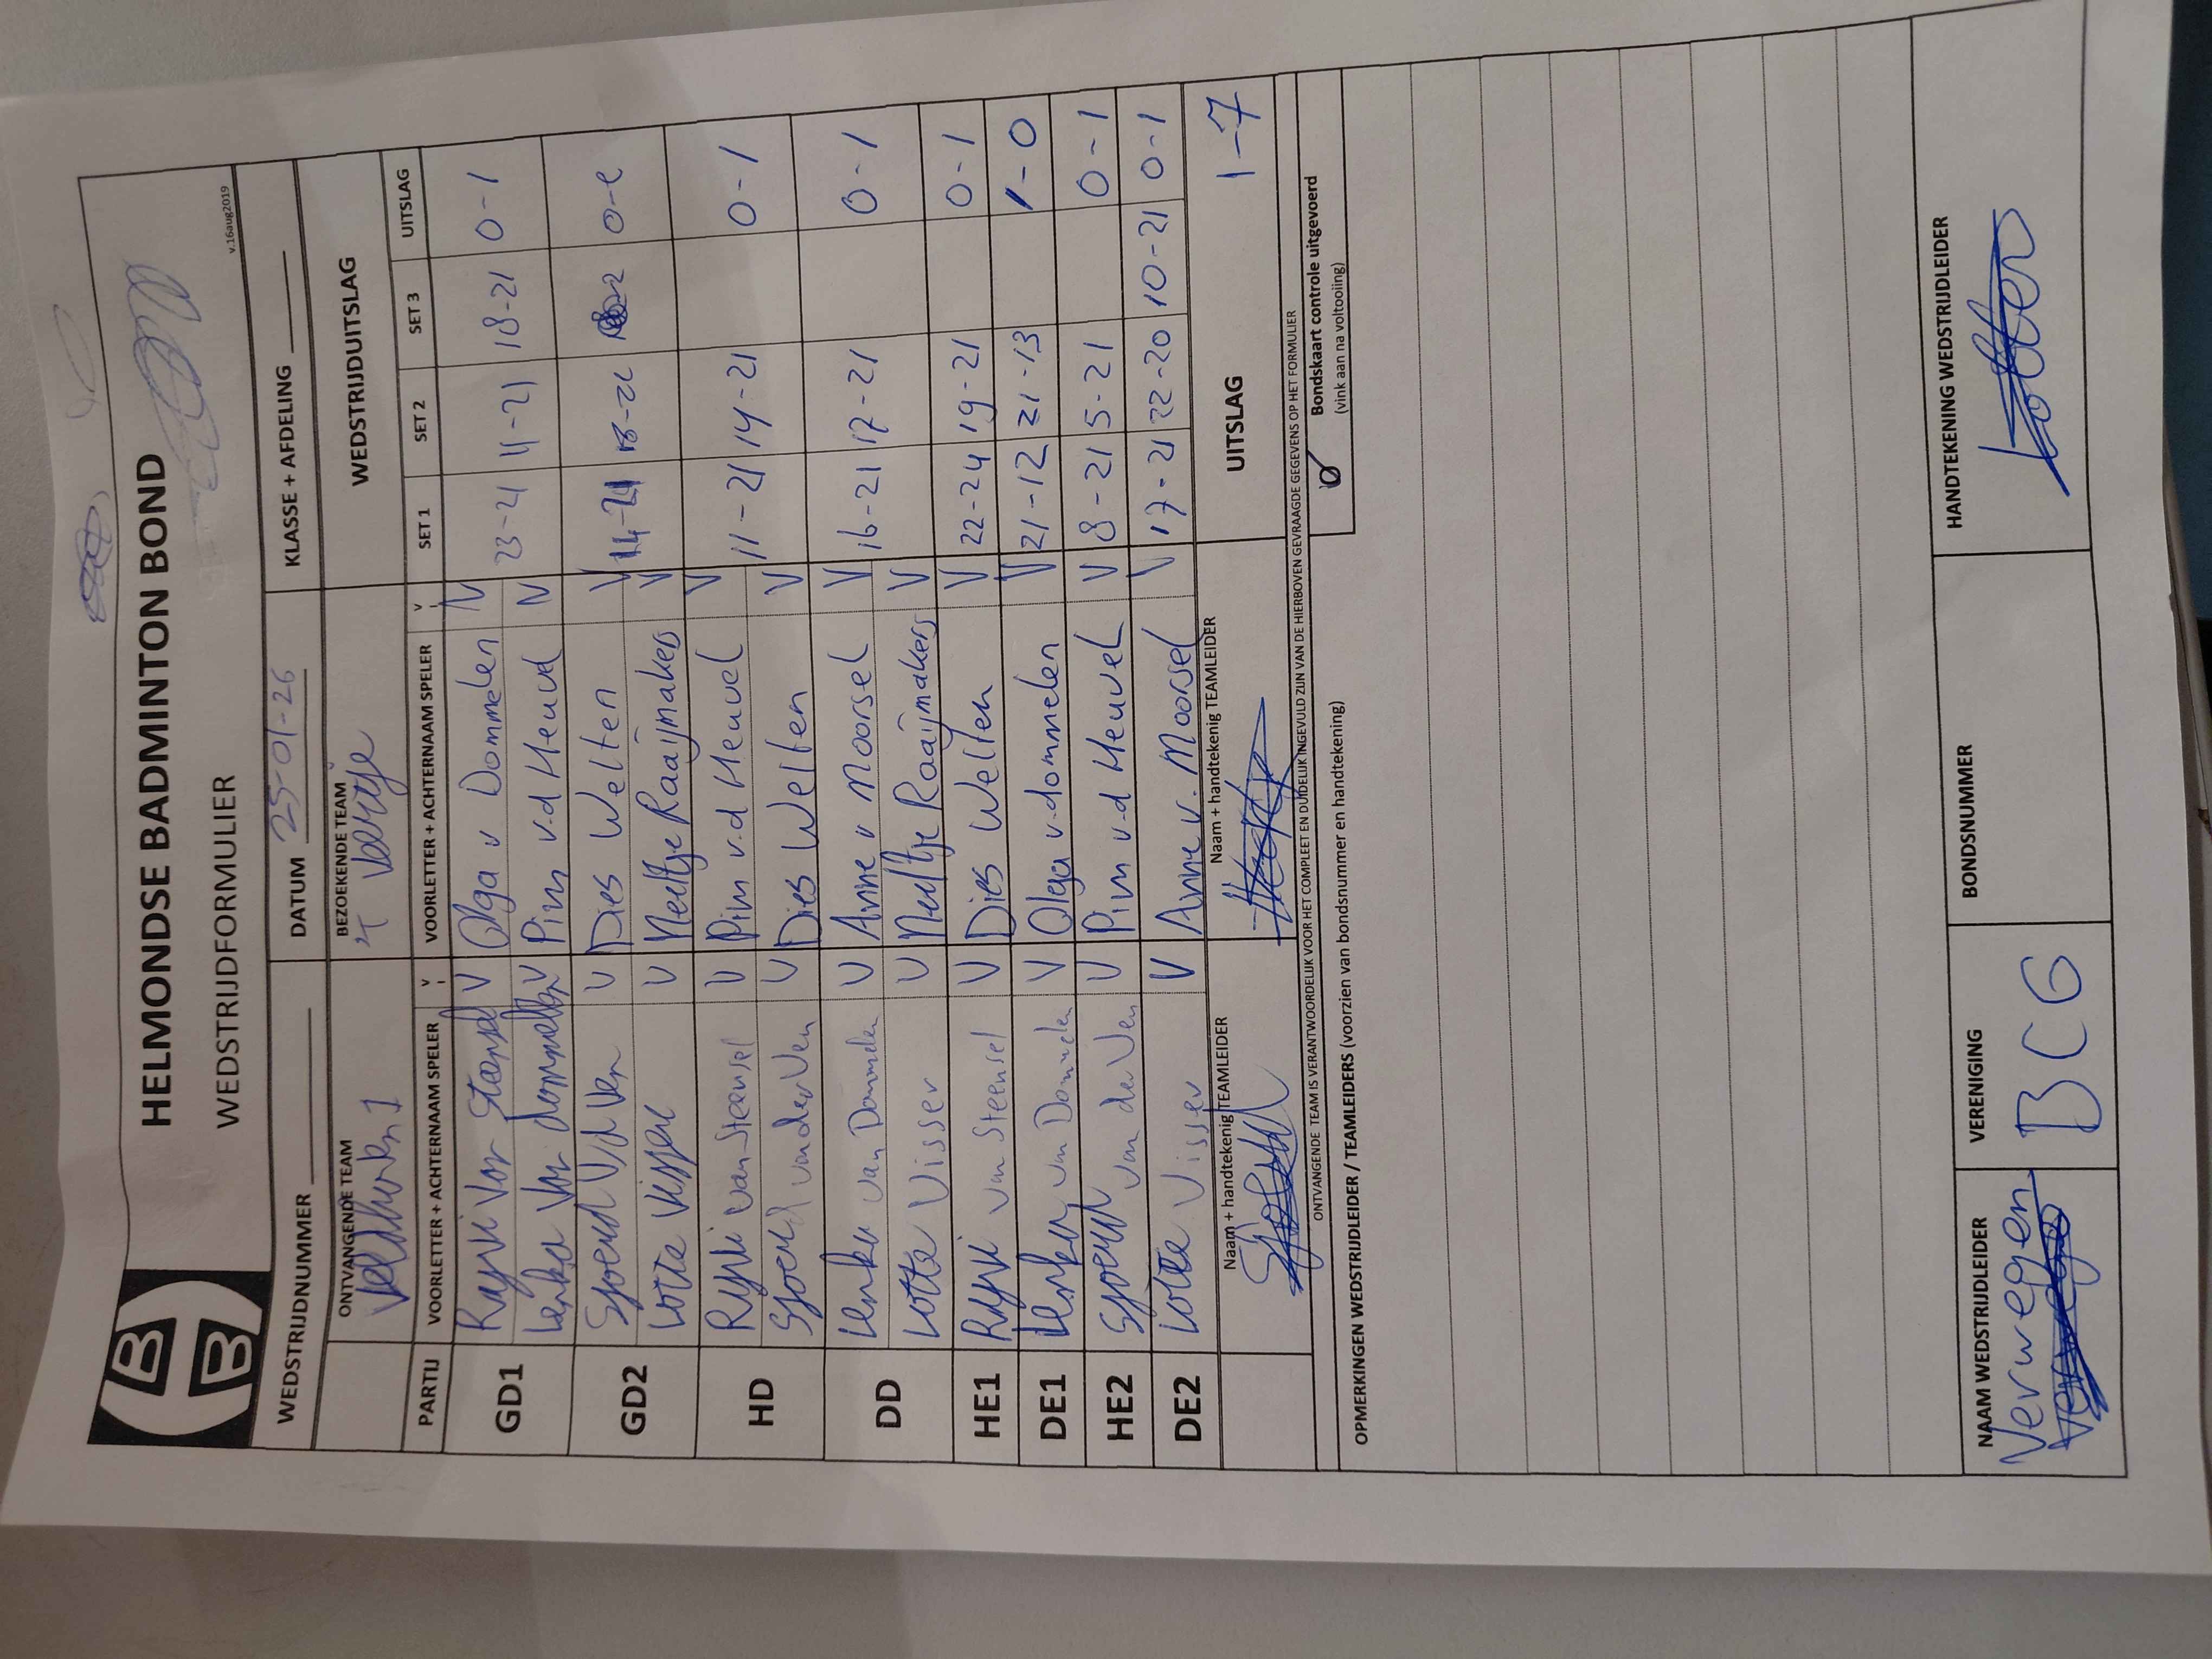 HELMONDSE BADMINTON BOND
WEDSTRIJDFORMULIER
v.16aug2019
WEDSTRIJDNUMMER DATUM 25-01-26 KLASSE + AFDELING
ONTVANGENDE TEAM BEZOEKENDE TEAM WEDSTRIJDUITSLAG
1
PARTIJ VOORLETTER + ACHTERNAAM SPELER V VOORLETTER + ACHTERNAAM SPELER V SET 1 SET 2 SET 3 UITSLAG
GD1 V Olga v Dommelen V 23-21 11-21 18-21 0-1
Lenka V Pim v.d Heuvel V
GD2 Sjoerd V/d Ven V Dies Welten V 14-21 18-21 0-1
Lotte Visser V Neeltje Raaijmakers V
HD van Steensel V Pim v.d Heuvel V 11-21 14-21 0-1
Sjoerd van der Ven V Dies Welten V
DD Lenka van Dommelen V Anne v Moorsel V 16-21 17-21 0-1
Lotte Visser V Neeltje Raaijmakers V
HE1 van Steensel V Dies Welten V 22-24 19-21 0-1
DE1 Lenka van Dommelen V Olga v.dommelen V 21-12 21-13 1-0
HE2 Sjoerd van der Ven V Pim v.d Heuvel V 8-21 5-21 0-1
DE2 Lotte Visser V Anne v. Moorsel V 17-21 22-20 10-21 0-1
Naam + handtekenig TEAMLEIDER Naam + handtekenig TEAMLEIDER UITSLAG 1-7
ONTVANGENDE TEAM IS VERANTWOORDELIJK VOOR HET COMPLEET EN DUIDELIJK INGEVULD ZIJN VAN DE HIERBOVEN GEVRAAGDE GEGEVENS OP HET FORMULIER
Bondskaart controle uitgevoerd
(vink aan na voltooiing)
OPMERKINGEN WEDSTRIJDLEIDER / TEAMLEIDERS (voorzien van bondsnummer en handtekening)
NAAM WEDSTRIJDLEIDER VERENIGING BONDSNUMMER HANDTEKENING WEDSTRIJDLEIDER
Verwegen BCG